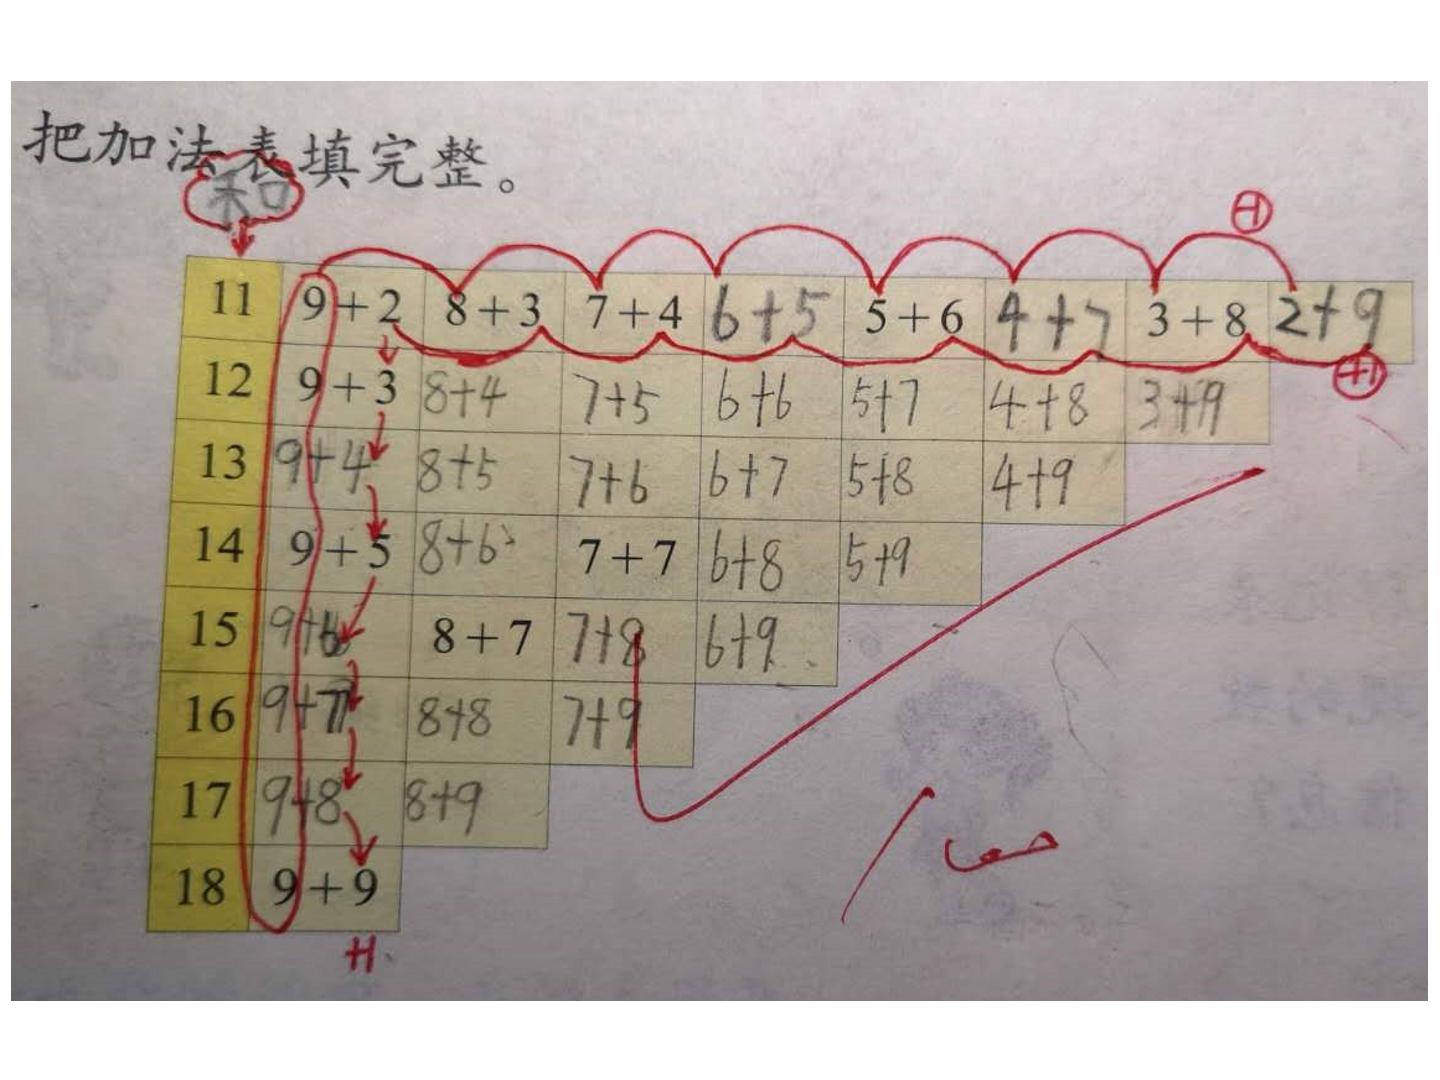 把加法表填完整。
和
11 9+2 8+3 7+4 6+5 5+6 4+7 3+8 2+9
12 9+3 8+4 7+5 6+6 5+7 4+8 3+9
+1
13 9+4 8+5 7+6 6+7 5+8 4+9
14 9+5 8+6 7+7 6+8 5+9
15 9+6 8+7 7+8 6+9
16 9+7 8+8 7+9
17 9+8 8+9
18 9+9
+1